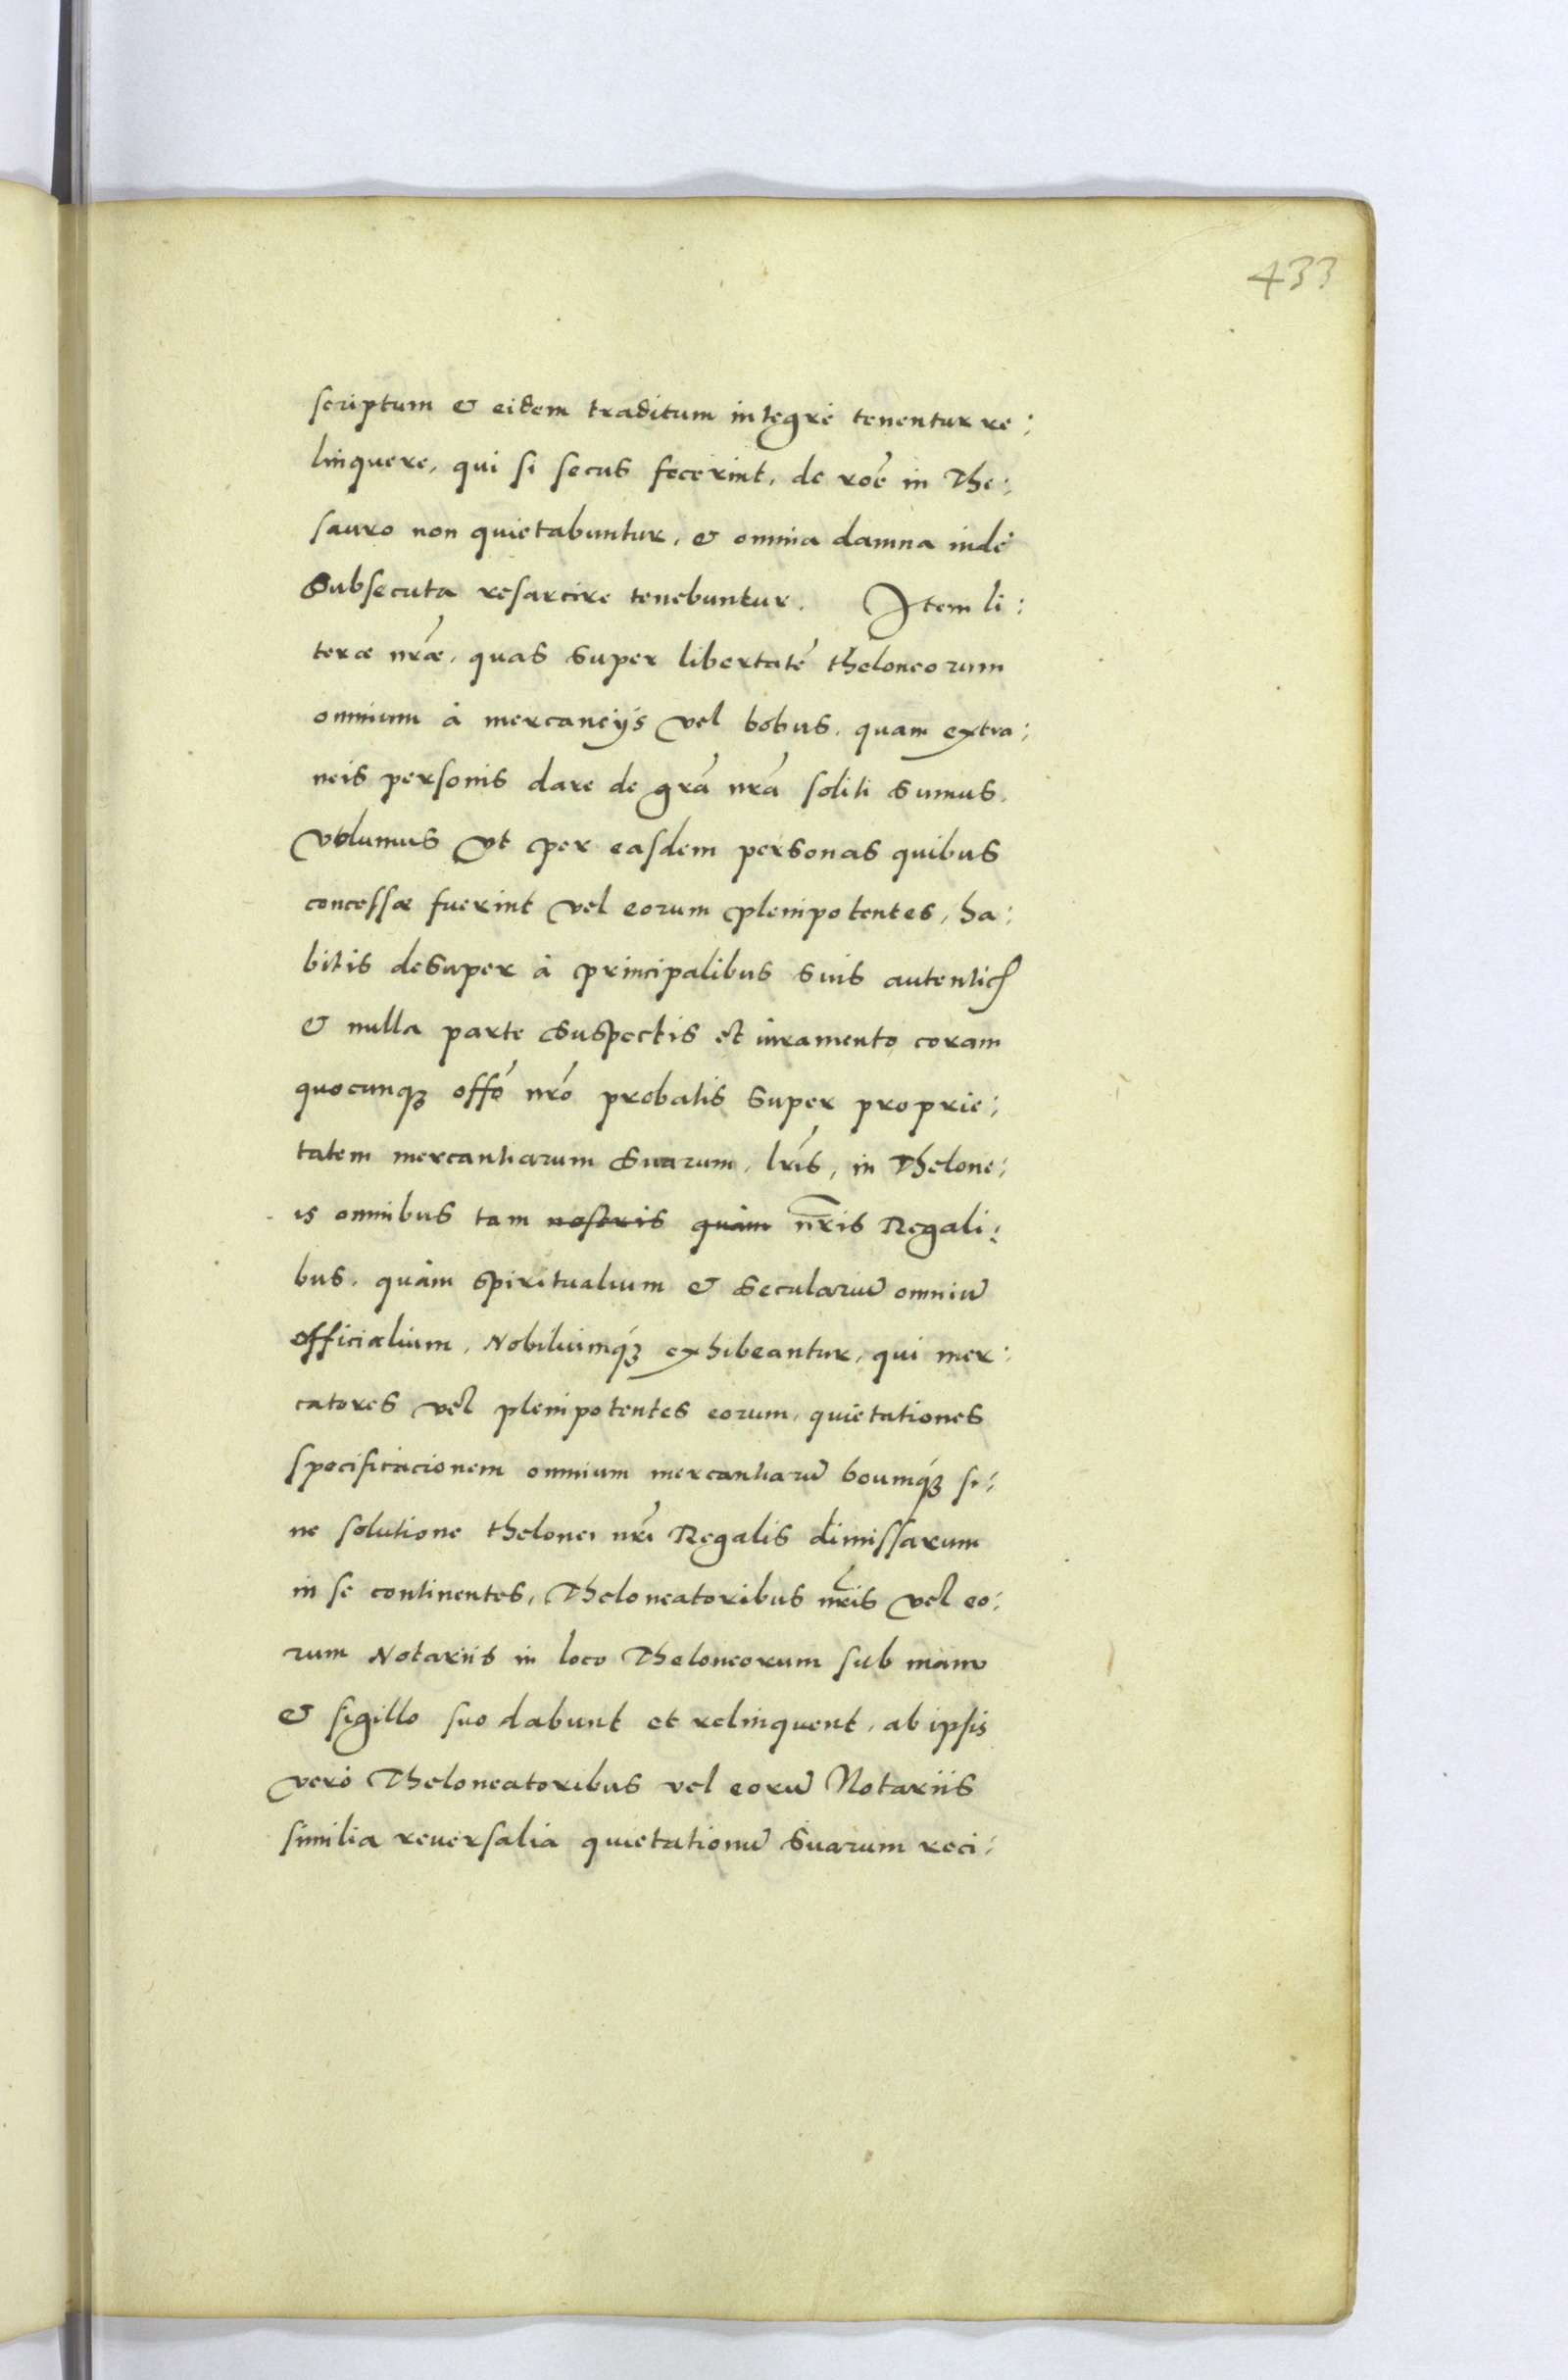 433
scriptum & eidem traditum integrè tenentur re:
linquere, qui si secus fecerint, de roẽ in The:
sauro non quietabuntur, & omnia damna indè
Subsecuta resarcire tenebuntur. Item li:
teræ nr̃æ, quas super libertatẽ theloneorum
omnium à mercancijs vel bobus, quam extra:
neis personis dare de grã nr̃a soliti sumus.
Volumus Vt per easdem personas quibus
concessæ fuerint vel eorum plenipotentes, ha:
bitis desuper à principalibus suis autenticꝭ
& nulla parte suspectis et iuramento coram
quocunqꝫ offõ nr̃o probatis super proprie:
tatem mercantiarum suarum, lr̃is, in Thelone:
is omnibus tam nostris quàm nr̃is Regali:
bus, quàm spiritualium & seculariũ omniũ
officialium, Nobiliumqꝫ exhibeantur, qui mer:
catores vel plenipotentes eorum, quietationes
specificacionem omnium mercantiarũ boumqꝫ si:
ne solutione thelonei nr̃i Regalis dimissarum
in se continentes, Theloneatoribus nr̃is vel eo:
rum Notariis in loco Theloneorum sub manu
& sigillo suo dabunt et relinquent, ab ipsis
verò Theloneatoribus vel eorũ Notariis
similia reuersalia quietationũ suarum reci: